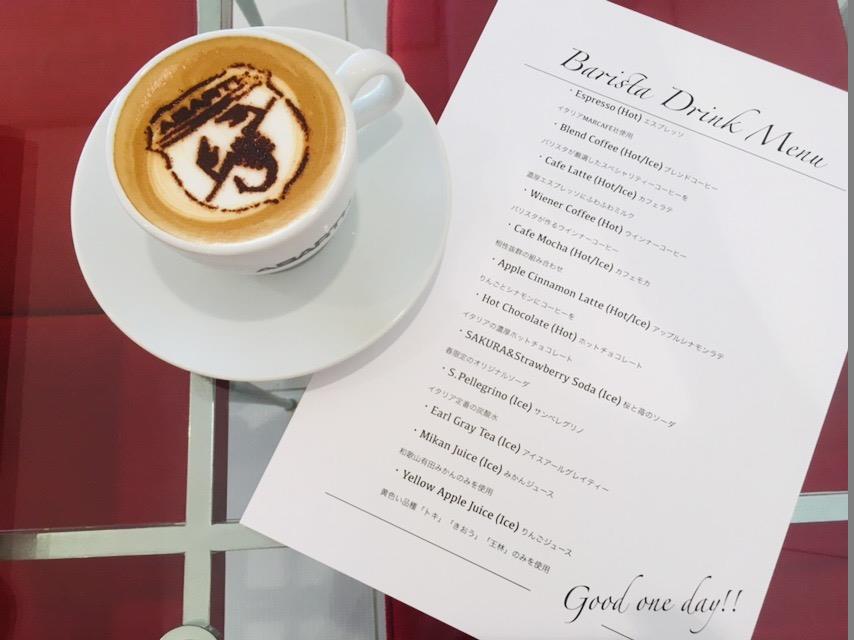 ABARTH
ABARTH
Barista Drink Menu
・Espresso (Hot) エスプレッソ
イタリアMARCAFE社使用
・Blend Coffee (Hot/Ice) ブレンドコーヒー
バリスタが厳選したスペシャリティーコーヒーを
・Cafe Latte (Hot/Ice) カフェラテ
濃厚エスプレッソにふわふわミルク
・Wiener Coffee (Hot) ウインナーコーヒー
バリスタが作るウインナーコーヒー
・Cafe Mocha (Hot/Ice) カフェモカ
相性抜群の組み合わせ
・Apple Cinnamon Latte (Hot/Ice) アップルシナモンラテ
りんごとシナモンにコーヒーを
・Hot Chocolate (Hot) ホットチョコレート
イタリアの濃厚ホットチョコレート
・SAKURA&Strawberry Soda (Ice) 桜と苺のソーダ
春限定のオリジナルソーダ
・S.Pellegrino (Ice) サンペレグリノ
イタリア定番の炭酸水
・Earl Gray Tea (Ice) アイスアールグレイティー
・Mikan Juice (Ice) みかんジュース
和歌山有田みかんのみを使用
・Yellow Apple Juice (Ice) りんごジュース
黄色い品種「トキ」「きおう」「王林」のみを使用
Good one day!!